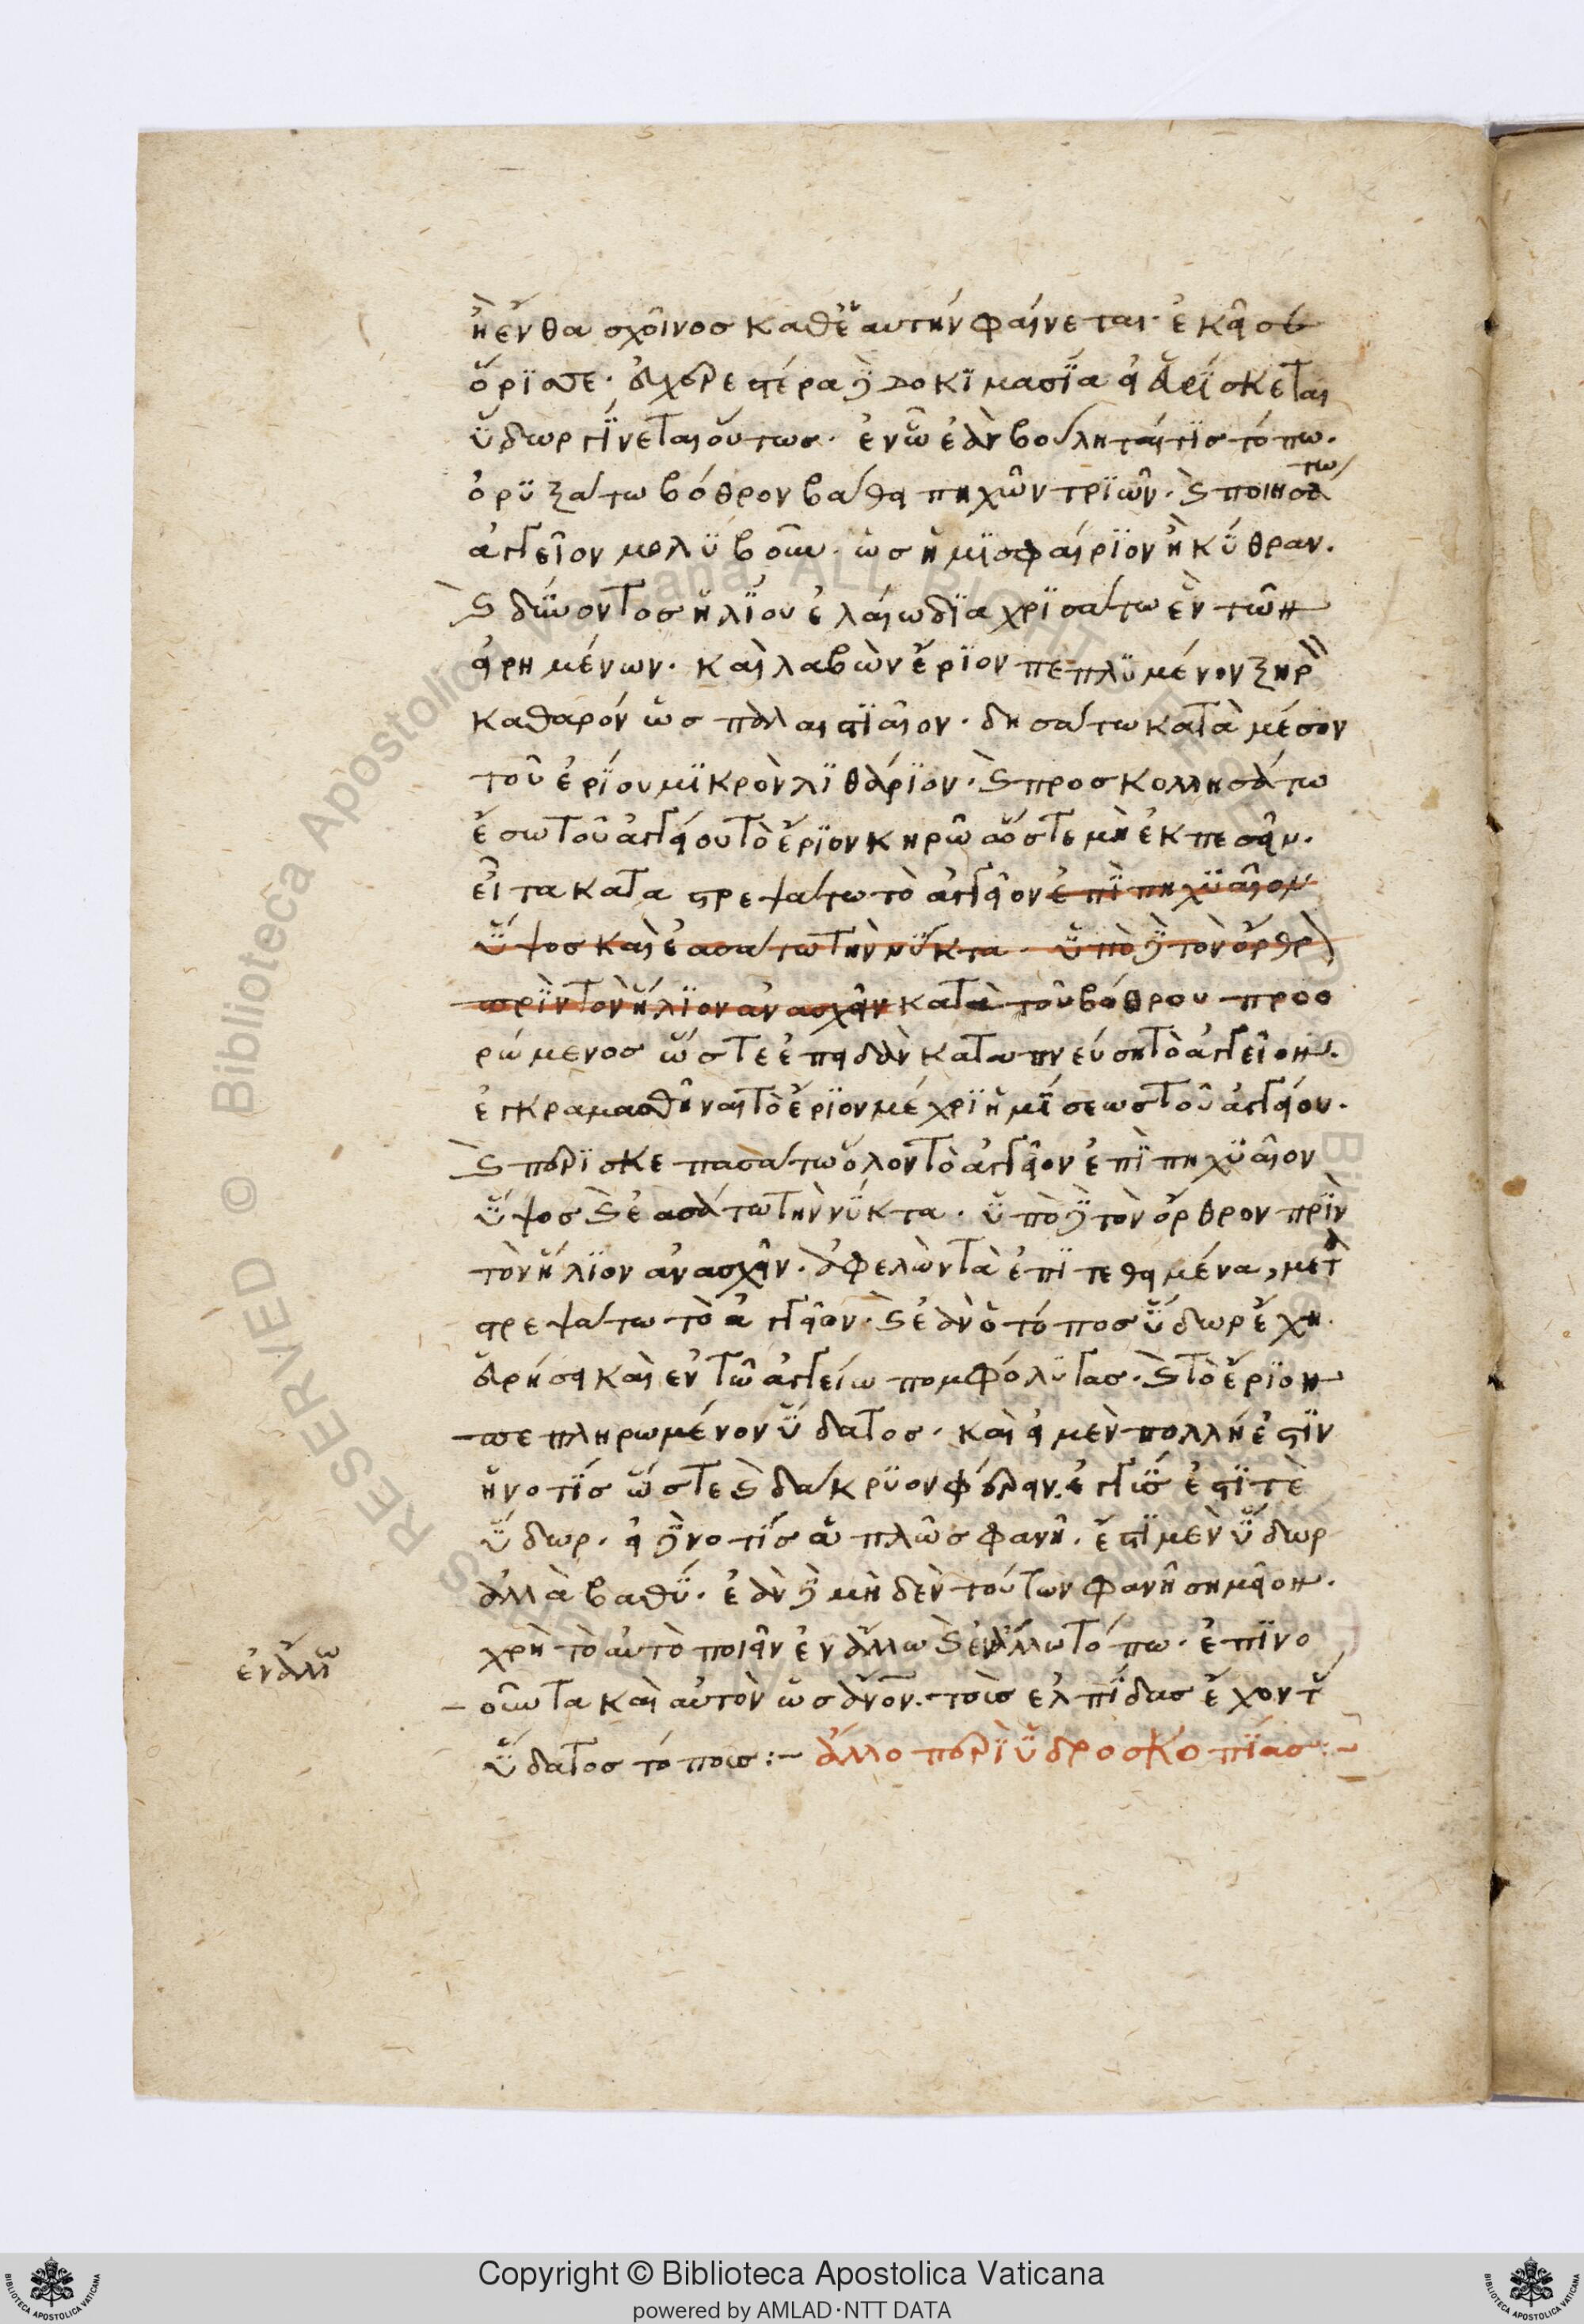 ἢ ἔνθα σχοῖνος καθἑαυτὴν φαίνεται· ἐκεῖσε
ὄρϋσσε· δὲ δοκϊμασΐα εἰ εὑρΐσκεται
ὕδωρ γΐνεται οὕτως· ἐν ὧ ἐὰν βούληταί τϊς τόπω.
ὀρϋξάτω βόθρον βάθει πηχῶν τρϊῶν· καὶ ποιησάτω
ἀγγεῖον μολϋβοῦν· ὡς ἡμϊσφαίρϊον ἢ κΰθραν.
καὶ δύνοντος ἡλΐου ἐλαίω δϊαχρϊσάτω ἓν τῶν
εἰρημένων· καὶ λαβὼν ἔρϊον πεπλϋμένον ξηρὸν
καθαρόν ὡς παλαιστϊαῖον· δησάτω κατὰ μέσον
τοῦ ἐρΐου μϊκρὸν λϊθάρϊον· καὶ προσκολλησάτω
ἔσω τοῦ ἀγγείου τὸ ἔρϊον κηρῶ ὥστε μὴ ἐκπεσεῖν.
εἶτα καταστρεψάτω τὸ ἀγγεῖον ἐπῒ πηχϋαῖον
ὕψος καὶ ἐασάτω τὴν νΰκτα· ὑπὸ δὲ τὸν ὄρθρον
πρῒν τὸν ἥλϊον ἀνασχεῖν κατὰ τοῦ βόθρου προο
ρώμενος ὥστε ἐπειδὰν καταπνεύση τὸ ἀγγεῖον.
ἐγκραμασθῆναι τὸ ἔρϊον μέχρϊ ἡμΐσεως τοῦ ἀγγείου.
καὶ περϊσκεπασάτω ὅλον τὸ ἀγγεῖον ἐπῒ πηχϋαῖον
ὕψος καὶ ἐασάτω τὴν νΰκτα· ὑπὸ δὲ τὸν ὄρθρον πρῒν
τὸν ἥλϊον ἀνασχεῖν· ἀφελὼν τὰ ἐπϊτεθειμένα, μετα
στρεψάτω τὸ ἀγγεῖον· καὶ ἐὰν ὁ τόπος ὕδωρ ἔχη.
εὑρήσει καὶ ἐν τῶ ἀγγείω πομφόλϋγας· καὶ τὸ ἔρϊον
πεπληρωμένον ὕδατος· καὶ εἰ μὲν πολλή ἐστϊν
ἡ νοτΐς ὥστε καὶ δάκρϋον φέρειν· ἐγγΰς ἐστϊ τὸ
ὕδωρ· εἰ δὲ νοτΐς ἁπλῶς φανῆ· ἔστϊ μὲν ὕδωρ
ἀλλὰ βαθΰ· ἐὰν δὲ μηδὲν τούτων φανῆ σημεῖον.
χρὴ τὸ αὐτὸ ποιεῖν ἐν ἄλλω καὶ ἐν ἄλλω τόπω· ἐπϊνο
οῦντα καὶ αὐτὸν ὡς τοὺς ἐλπΐδας ἔχοντας
ὕδατος τόπους :– ἄλλο περῒ ὑδροσκοπΐας :–
ἐν ἄλλω
Copyright © Biblioteca Apostolica Vaticana
powered by AMLAD·NTT DATA